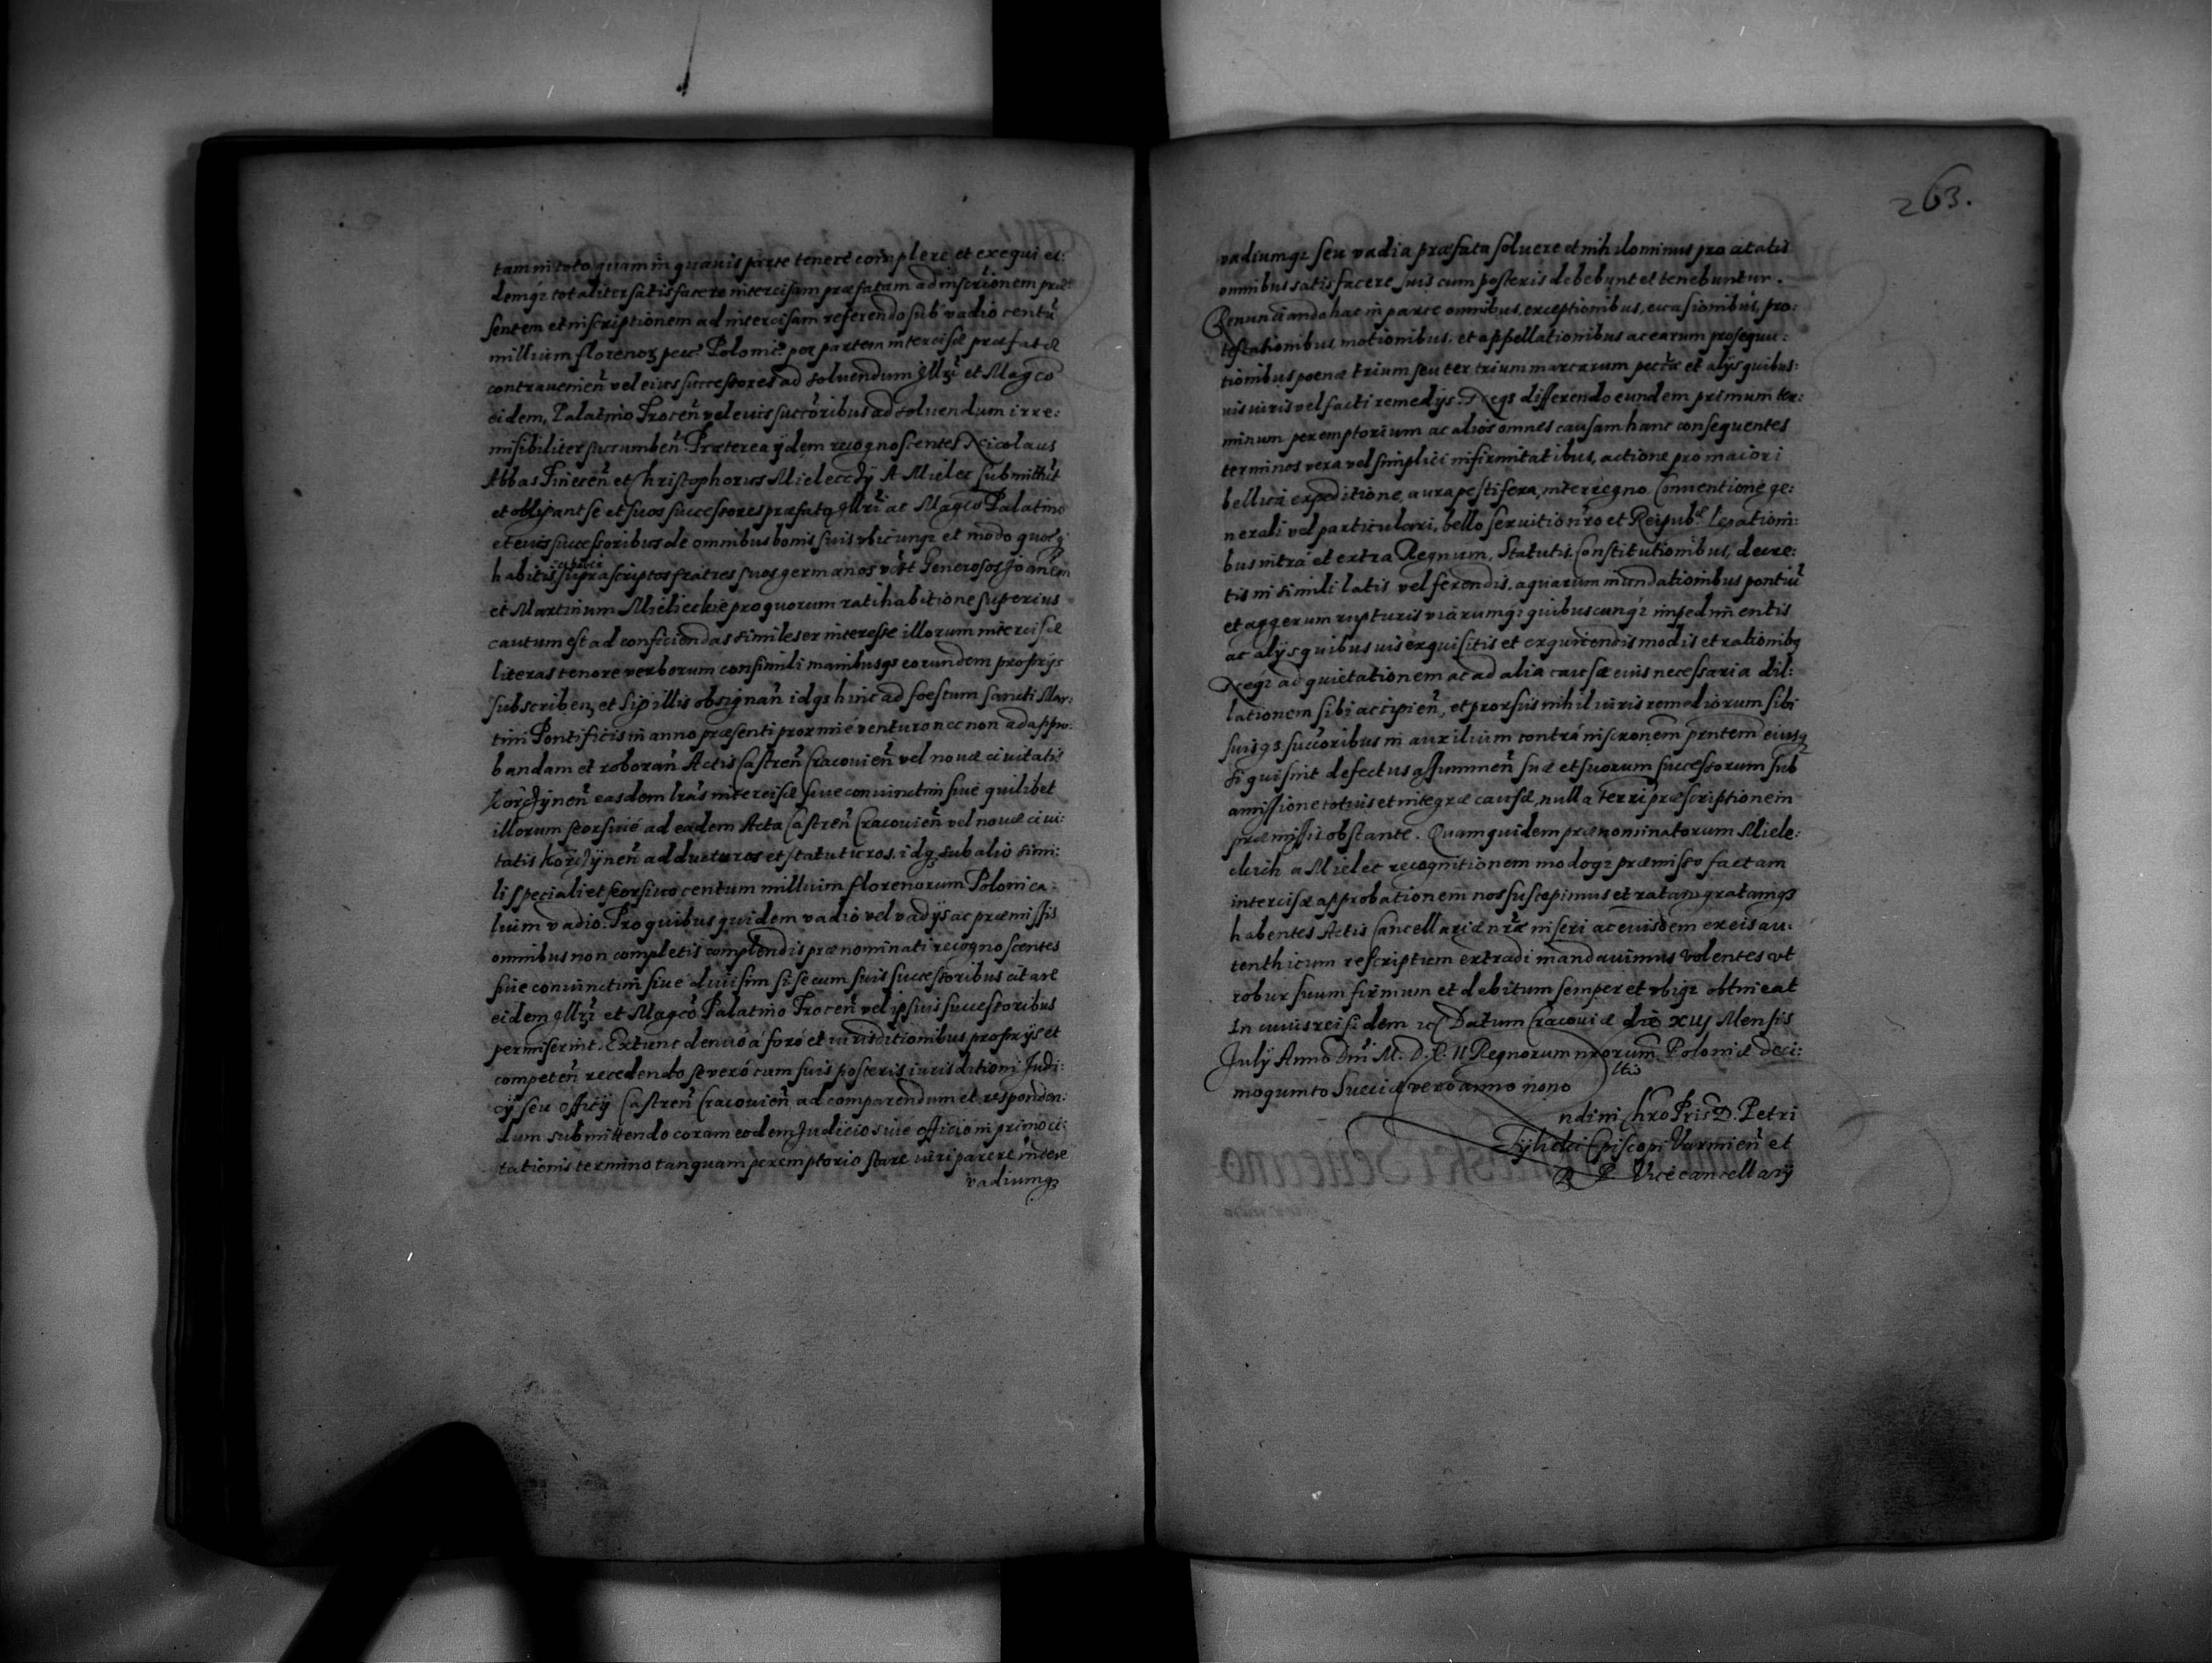 tam in toto quam in quauis parte tenere complere et exequi ei:
demq₃ totaliter satisfacere intercisam præfatam ad inscriõnem præ:
sentem et inscriptionem ad intercisam referendo sub vadio centũ
millium florenoꝝ pecũ Polonic̃ per partem intercisæ præfatæ
contrauenien̄ vel eius successores ad soluendum Illr̃i et Mag̃co
eidem Palatino Trocen̄ vel eius succ̃oribus ad soluendum irre:
misibiliter succumben̄. Præterea ijdem recognoscentes Nicolaus
Abbas Tinecen̄ et Christophorus Mieleccÿ A Mielec submittũt
et obligant se et suos successores præfato Illr̃i ac Mag̃co Palatino
et eius successoribus de omnibus bonis suis vbicunq₃ et modo quoq₃
habitis supra scriptos fratres suos germanos vc̃t Generosos Joan̄em
et Martinum Mielieckie pro quorum ratihabitione superius
cautum est ad conficiendas similes ex interesse illorum intercisæ
literas tenore verborum consimili manibusq₃ eorundem proprijs
subscriben̄ et sigillis obsignan̄ idq₃ hinc ad foestum sancti Mar:
tini Pontificis in anno præsenti proxime venturo nec non ad appro:
bandam et roboran̄ Actis Castren̄ Cracouien̄ vel nouæ ciuitatis
Korcÿnen̄ easdem lr̃as intercisæ siue coniunctim siue quilibet
illorum seorsiue ad eadem Acta Castren̄ Cracouien̄ vel nouæ ciui:
tatis Korcÿnen̄ adducturos et statuturos. idq₃ sub alio simi:
li speciali et seorsiuo centum millium florenorum Polonica:
lium vadio. Pro quibus quidem vadio vel vadijs ac præmissis
omnibus non completis complendis prænominati recognoscentes
siue coniunctim siue diuisim si se cum suis successoribus citare
eidem Illr̃i et Mag̃co Palatino Trocen̄ vel ipsius successoribus
permiserint. Extunc denuo á foro et iurisditionibus proprijs et
competen̄ recedendo se vero cum suis posteris iurisditioni Judi:
cij seu officij Castren̄ Cracouien̄ ad comparendum et responden:
dum submittendo coram eodem Judicio siue officio in primo ci:
tationis termino tanquam peremptorio stare iuri parere indere
vadiumq₃
263.
vadiumq₃ seu vadia præfata soluere et nihilominus pro citatis
omnibus satisfacere suis cum posteris debebunt et tenebuntur.
Renuncianda hac in parte omnibus, exceptionibus, euasionibus, pro:
testationibus motionibus, et appellationibus ac earum prosequu:
tionibus poenæ trium seu ter trium marcarum pec̃tæ et alijs quibus:
uis iuris vel facti remedijs. Neq₃ differendo eundem primum ter:
minum peremptorium ac alios omnes causam hanc consequentes
terminos vera vel simplici infirmitatibus, actione pro maiori
bellica expeditione, aura pestifera, interregno Conuentione ge:
nerali vel particulari, bello seruitio nr̃o et Reipub: legationi:
bus intra et extra Regnum, Statutis Constitutionibus, decre:
tis in simili latis vel ferendis, aquarum inundationibus pontiũ
et aggerum rupturis viarumq₃ quibuscunq₃ impedim̄entis
ac alijs quibusuis exquisitis et exquirendis modis et rationibq
Neq₃ ad quietationem ac ad alia causæ eius necessaria dil:
lationem sibi accipien̄, et prorsus nihil iuris remediorum sibi
suisq₃ succ̃oribus in auxilium contra inscr̃onem prn̄tem eiusq₃
si qui sint defectus assummen̄ suæ et suorum successorum sub
amissione totius et integræ causæ, nulla Terri præscriptione in
præmissis obstante. Quam quidem prænominatorum Miele:
ckich a Mielec recognitionem modoq₃ præmisso factam
intercisæ approbationem nos suscepimus et ratam gratamq₃
habentes Actis Cancellariæ nr̃æ inseri ac eiusdem ex eis au:
tenthicum rescriptum extradi mandauimus volentes vt
robur suum firmum et debitum semper et vbiq₃ obtineat
In cuius rei fidem ꝛc̃ Datum Cracouiæ die xiij Mensis
Julij Anno Dn̄i M. D. C. II Regnorum nr̃orum Poloniæ deci:
moquinto Sueciæ vero anno nono
ndi in Chro Pris D. Petri
Tÿlicki Episcopi Varmien̄ et
R P. Vicecancellarij